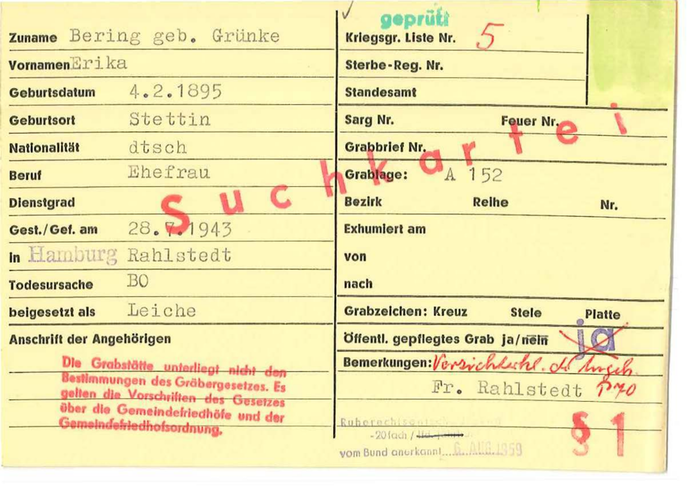 Zuname Bering geb. Grünke
Vornamen Erika
Geburtsdatum 4.2.1895
Geburtsort Stettin
Nationalität dtsch
Beruf Ehefrau
Dienstgrad
Gest./Gef. am 28.7.1943
in Hamburg Rahlstedt
Todesursache BO
beigesetzt als Leiche
Anschrift der Angehörigen
Die Grabstätte unterliegt nicht den
Bestimmungen des Gräbergesetzes. Es
gelten die Vorschriften des Gesetzes
über die Gemeindefriedhöfe und der
Gemeindefriedhofsordnung.
Suchkartei
geprüft
Kriegsgr. Liste Nr. 5
Sterbe-Reg. Nr.
Standesamt
Sarg Nr. Feuer Nr.
Grabbrief Nr.
Grablage: A 152
Bezirk Reihe Nr.
Exhumiert am
von
nach
Grabzeichen: Kreuz Stele Platte
Öffentl. gepflegtes Grab ja/nein ja
Bemerkungen: d. Angeh.
Fr. Rahlstedt 70
-20fach /
vom Bund anerkannt 6. AUG. 1959
§ 1